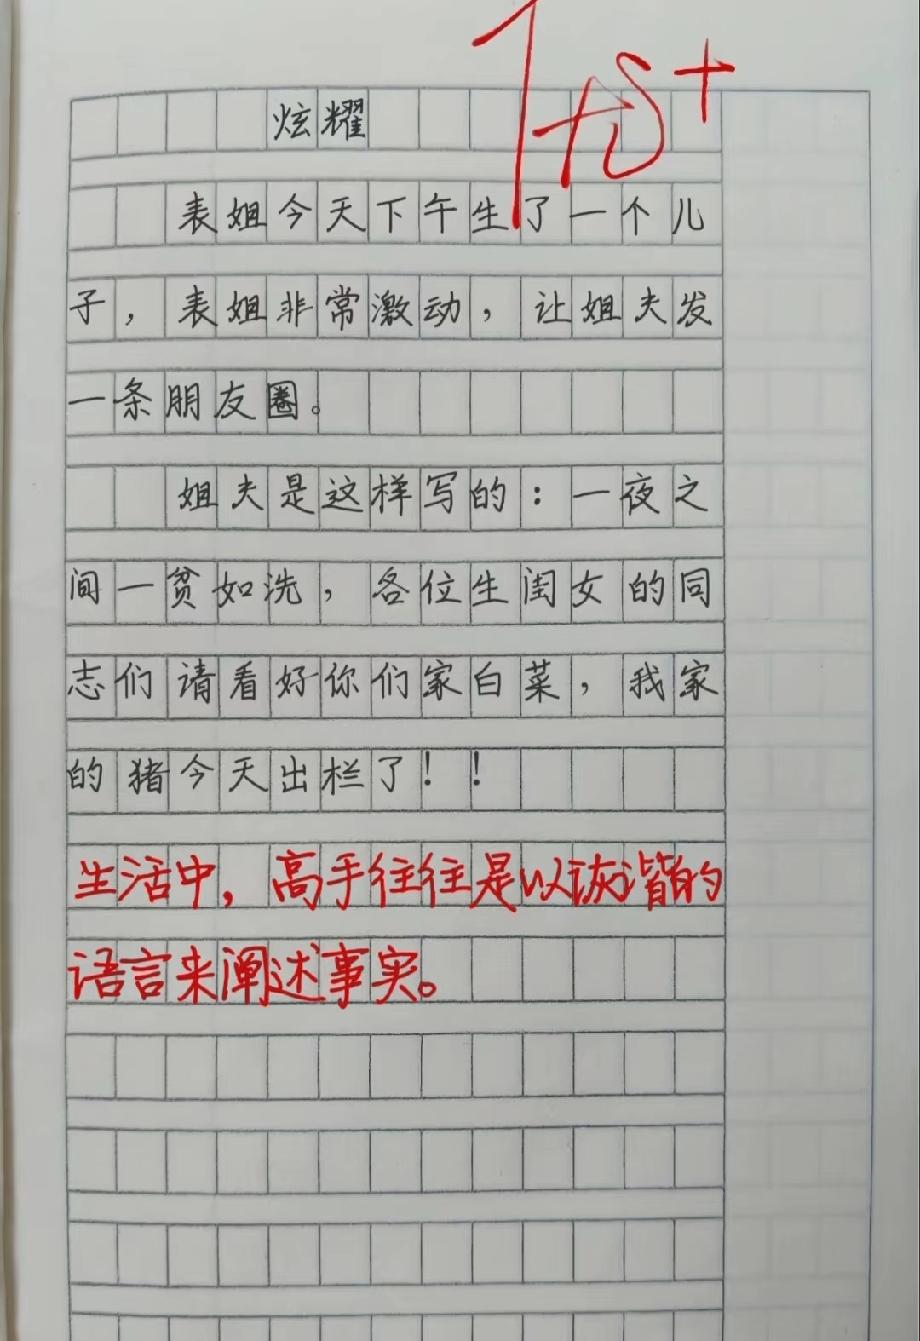 优+
炫耀
表姐今天下午生了一个儿
子，表姐非常激动，让姐夫发
一条朋友圈。
姐夫是这样写的：一夜之
间一贫如洗，各位生闺女的同
志们请看好你们家白菜，我家
的猪今天出栏了！！
生活中，高手往往是以诙谐的
语言来阐述事实。